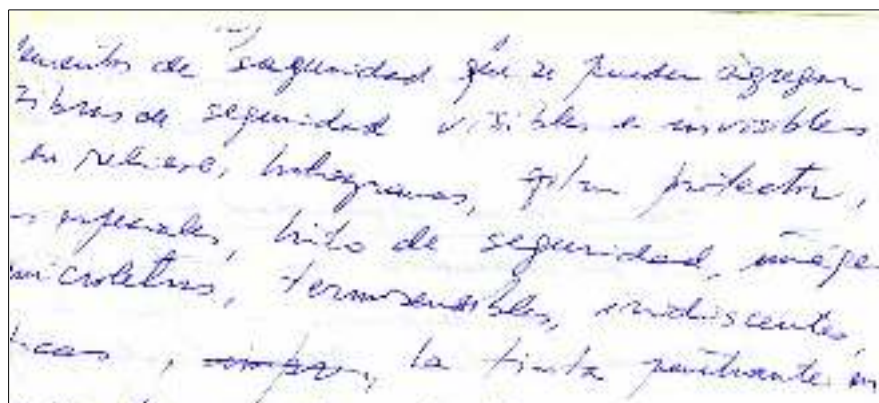 de seguridad que se pueden agregar
fibras de seguridad visibles e invisibles
en relieve, hologramas, film protector,
especiales, hilo de seguridad, image
microletras, termosensibles, iridiscentes,
la tinta penetrante en